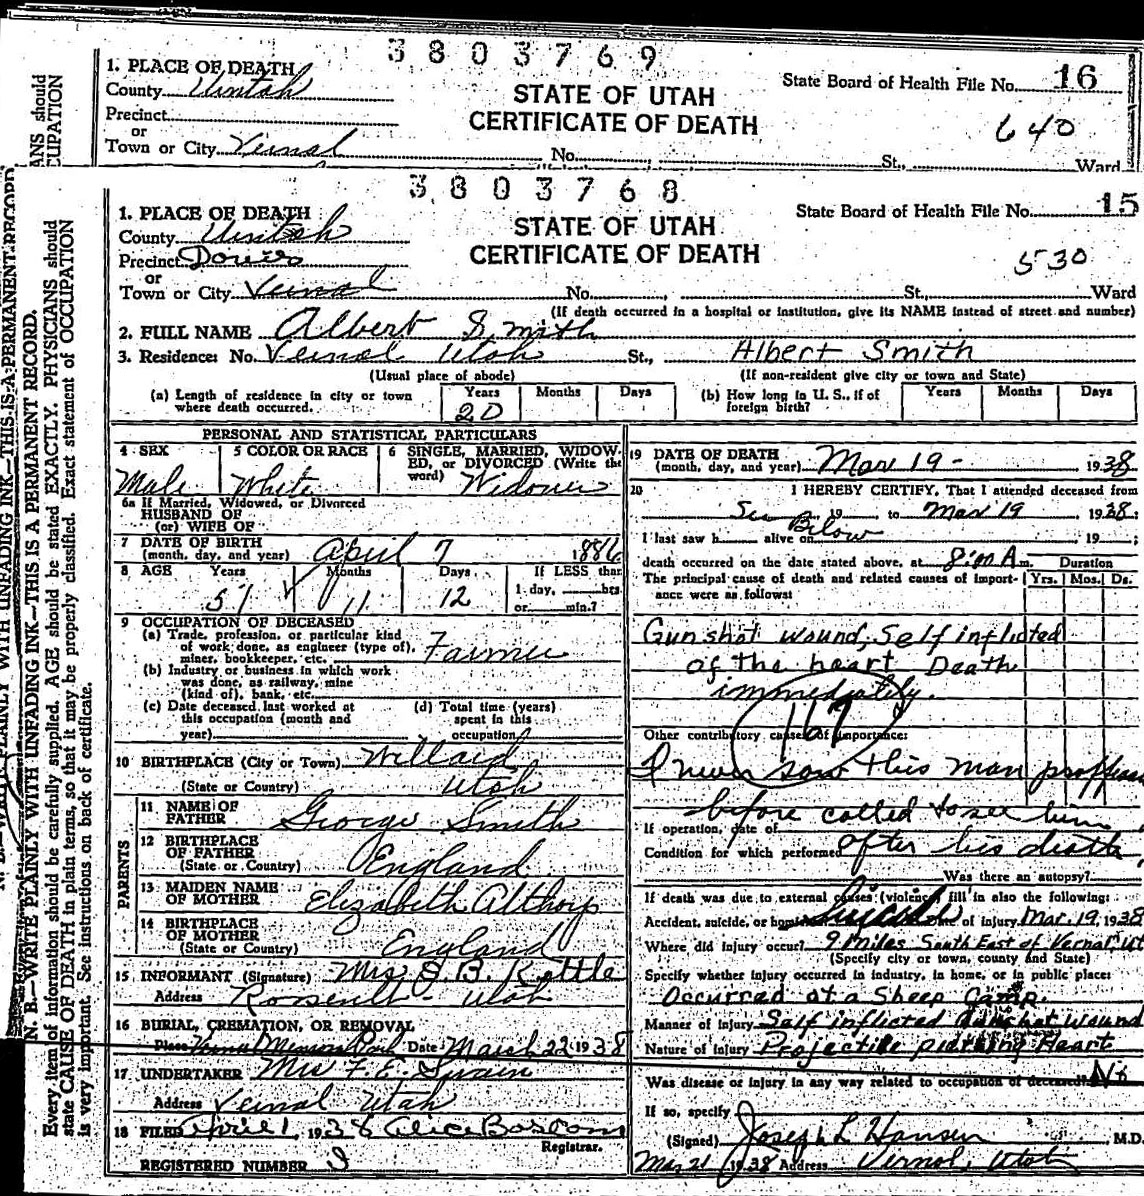 3803769
1. PLACE OF DEATH
State Board of Health File No. 16
County Uintah
STATE OF UTAH
Precinct
CERTIFICATE OF DEATH
640
or
Town or City Vernal No. St., Ward
3803768
1. PLACE OF DEATH
State Board of Health File No. 15
County Uintah
STATE OF UTAH
Precinct
CERTIFICATE OF DEATH
530
or
Town or City Vernal No. , St., Ward
(If death occurred in a hospital or institution, give its NAME instead of street and number)
2. FULL NAME Albert Smith
3. Residence: No. Vernal Utah St., Albert Smith
(Usual place of abode) (If non-resident give city or town and State)
(a) Length of residence in city or town where death occurred. Years 20 Months Days
(b) How long in U. S., if of foreign birth? Years Months Days
PERSONAL AND STATISTICAL PARTICULARS
4 SEX Male
5 COLOR OR RACE White
6 SINGLE, MARRIED, WIDOWED, or DIVORCED (Write the word) Widower
6a If Married, Widowed, or Divorced
HUSBAND OF
(or) WIFE OF
7 DATE OF BIRTH
(month, day, and year) April 7 1886
8 AGE Years 51 Months 11 Days 12 If LESS than 1 day, hrs. or min.?
9 OCCUPATION OF DECEASED
(a) Trade, profession, or particular kind of work done, as engineer (type of), miner, bookkeeper, etc. Farmer
(b) Industry or business in which work was done, as railway, mine (kind of), bank, etc.
(c) Date deceased last worked at this occupation (month and year)
(d) Total time (years) spent in this occupation
10 BIRTHPLACE (City or Town) Willard
(State or Country) Utah
PARENTS
11 NAME OF FATHER George Smith
12 BIRTHPLACE OF FATHER
(State or Country) England
13 MAIDEN NAME OF MOTHER Elizabeth Althorp
14 BIRTHPLACE OF MOTHER
(State or Country) England
15 INFORMANT (Signature) Mrs S. B. Kettle
Address Roosevelt - Utah
16 BURIAL, CREMATION, OR REMOVAL
Place Vernal Memorial Park Date March 22 1938
17 UNDERTAKER Mrs F. E. Swain
Address Vernal Utah
18 FILED April 1, 1938 Alice Bascom
Registrar.
REGISTERED NUMBER
19 DATE OF DEATH
(month, day, and year) Mar 19 - 1938
20 I HEREBY CERTIFY, That I attended deceased from
See Below, 19 to Mar 19 1938;
I last saw h alive on 19 ;
death occurred on the date stated above, at 8:00 A m. Duration
The principal cause of death and related causes of importance were as follows: Yrs. Mos. Ds.
Gun shot wound, Self inflicted
of the heart Death
immediately.
167
Other contributory causes of importance:
I never saw this man
before called to see him
If operation, date of
Condition for which performed after his death.
Was there an autopsy?
If death was due to external causes (violence) fill in also the following:
Accident, suicide, or homicide Suicide Date of injury Mar. 19, 1938
Where did injury occur? 9 miles South East of Vernal, Ut
(Specify city or town, county and State)
Specify whether injury occurred in industry, in home, or in public place:
Occurred at a Sheep Camp.
Manner of injury Self inflicted Gunshot wound
Nature of injury Projectile piercing Heart
Was disease or injury in any way related to occupation of deceased? No
If so, specify
(Signed) Joseph L Hansen M.D.
Mar 21 1938 Address Vernal, Utah
N. B.—WRITE PLAINLY WITH UNFADING INK—THIS IS A PERMANENT RECORD.
Every item of information should be carefully supplied. AGE should be stated EXACTLY. PHYSICIANS should
state CAUSE OF DEATH in plain terms, so that it may be properly classified. Exact statement of OCCUPATION
is very important. See instructions on back of certificate.
N. B.—WRITE PLAINLY WITH UNFADING INK—THIS IS A PERMANENT RECORD
ANS should
CUPATION